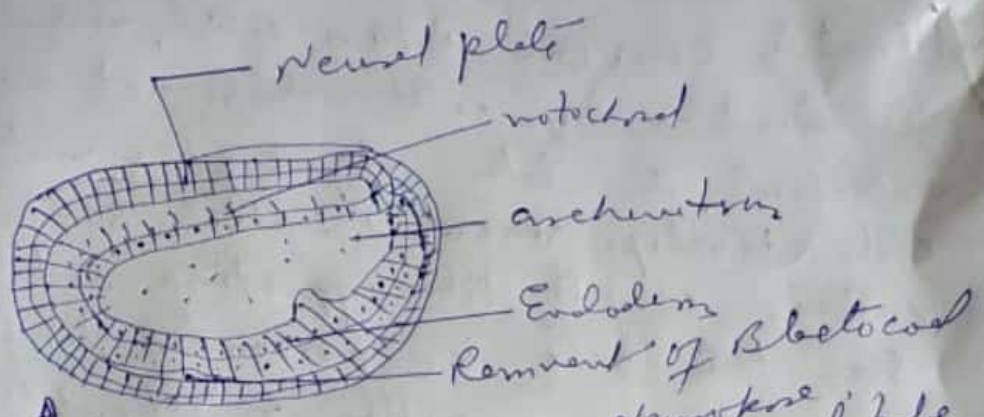 Neural plate
notochord
archenteron
Endoderm
Remnant of Blastocoel
A